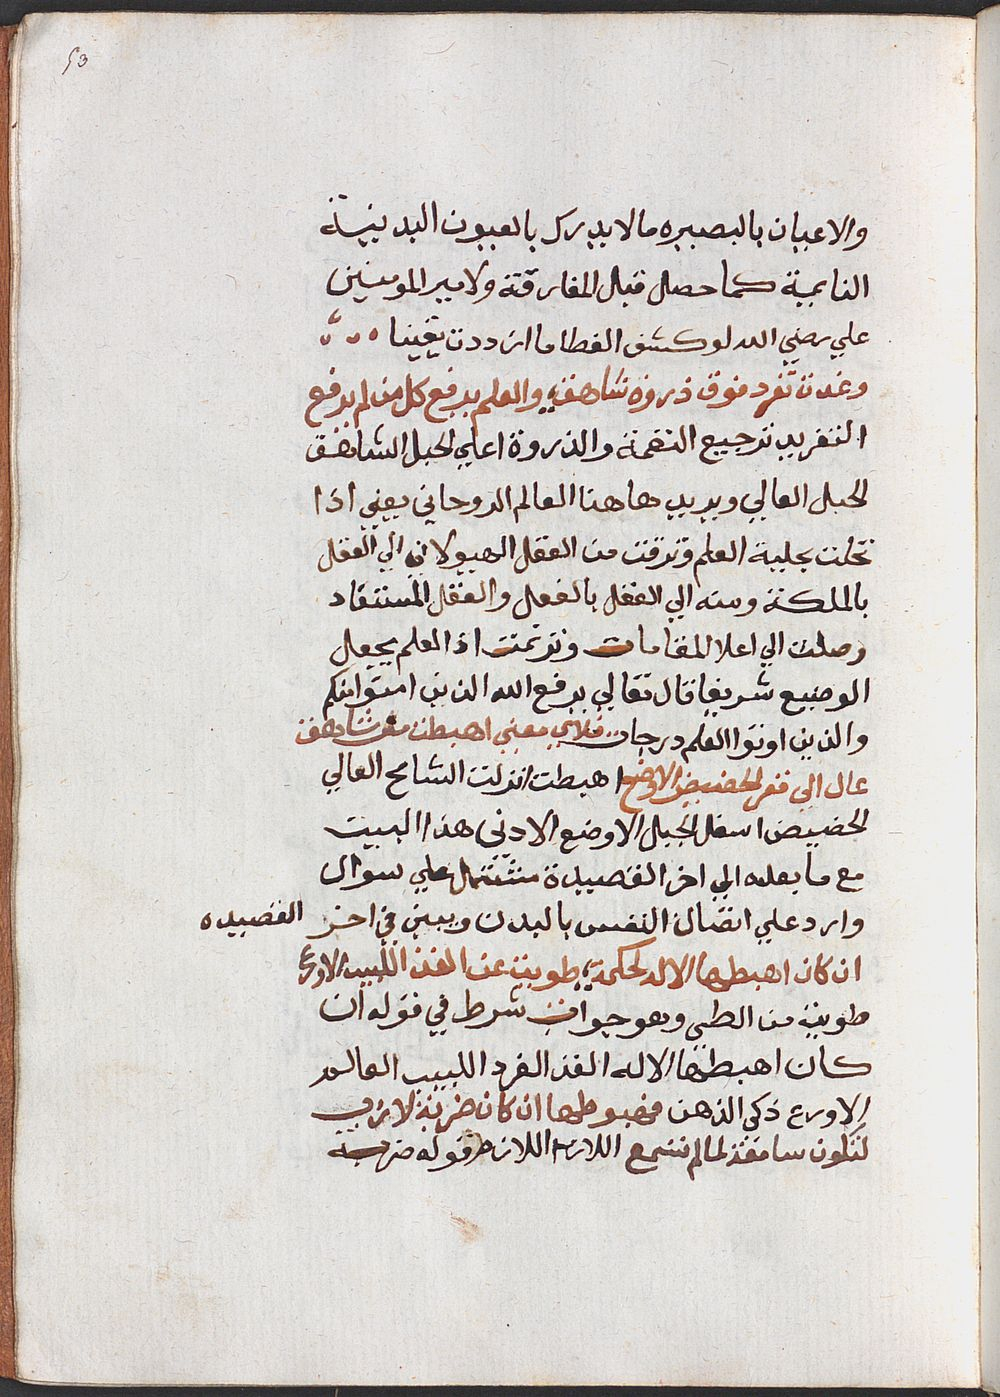 53
والاعيان بالبصيره مالا يدرك بالعيون البدنية
النايمية كما حصل قبل المفارقة ولامير المومنين
علي رضي الله لو كشف الغطا ما ازددت يقينا
وغدت تغرد فوق ذروة شاهق والعلم يرفع كل من لم يرفع
التغريد ترجيع النغمة والذروة اعلي الجبل الشاهق
الجبل العالي ويريد هاهنا العالم الروحاني يعني اذا
تحلت بحلية العلم وترقت من العقل الهيولاني الي العقل
بالملكة ومنه الي العقل بالفعل والعقل المستفاد
وصلت الي اعلا المقامات وترنمت اذ العلم يجعل
الوضيع شريفا قال تعالي يرفع الله الذين امنوا منكم
والذين اوتوا العلم درجات فلاي معني اهبطت من شاهق
عال الي قعر الحضيض الاوضع اهبطت انزلت الشامخ العالي
الحضيض اسفل الجبل الاوضع الادني هذا البيت
مع ما بعده الي اخر القصيدة مشتمل علي سوال
وارد علي اتصال النفس بالبدن ويبين في اخر القصيده
ان كان اهبطها الاله لحكمة طويت عن الفذ اللبيب الاروع
طويت من الطي وهو جواب شرط في قوله ان
كان اهبطها الاله الفذ الفرد اللبيب العالم
الاورع ذكي الذهن فهبوطها ان كان ضربة لازب
لتكون سامعة لما لم تسمع اللازب اللازم قوله ضربة